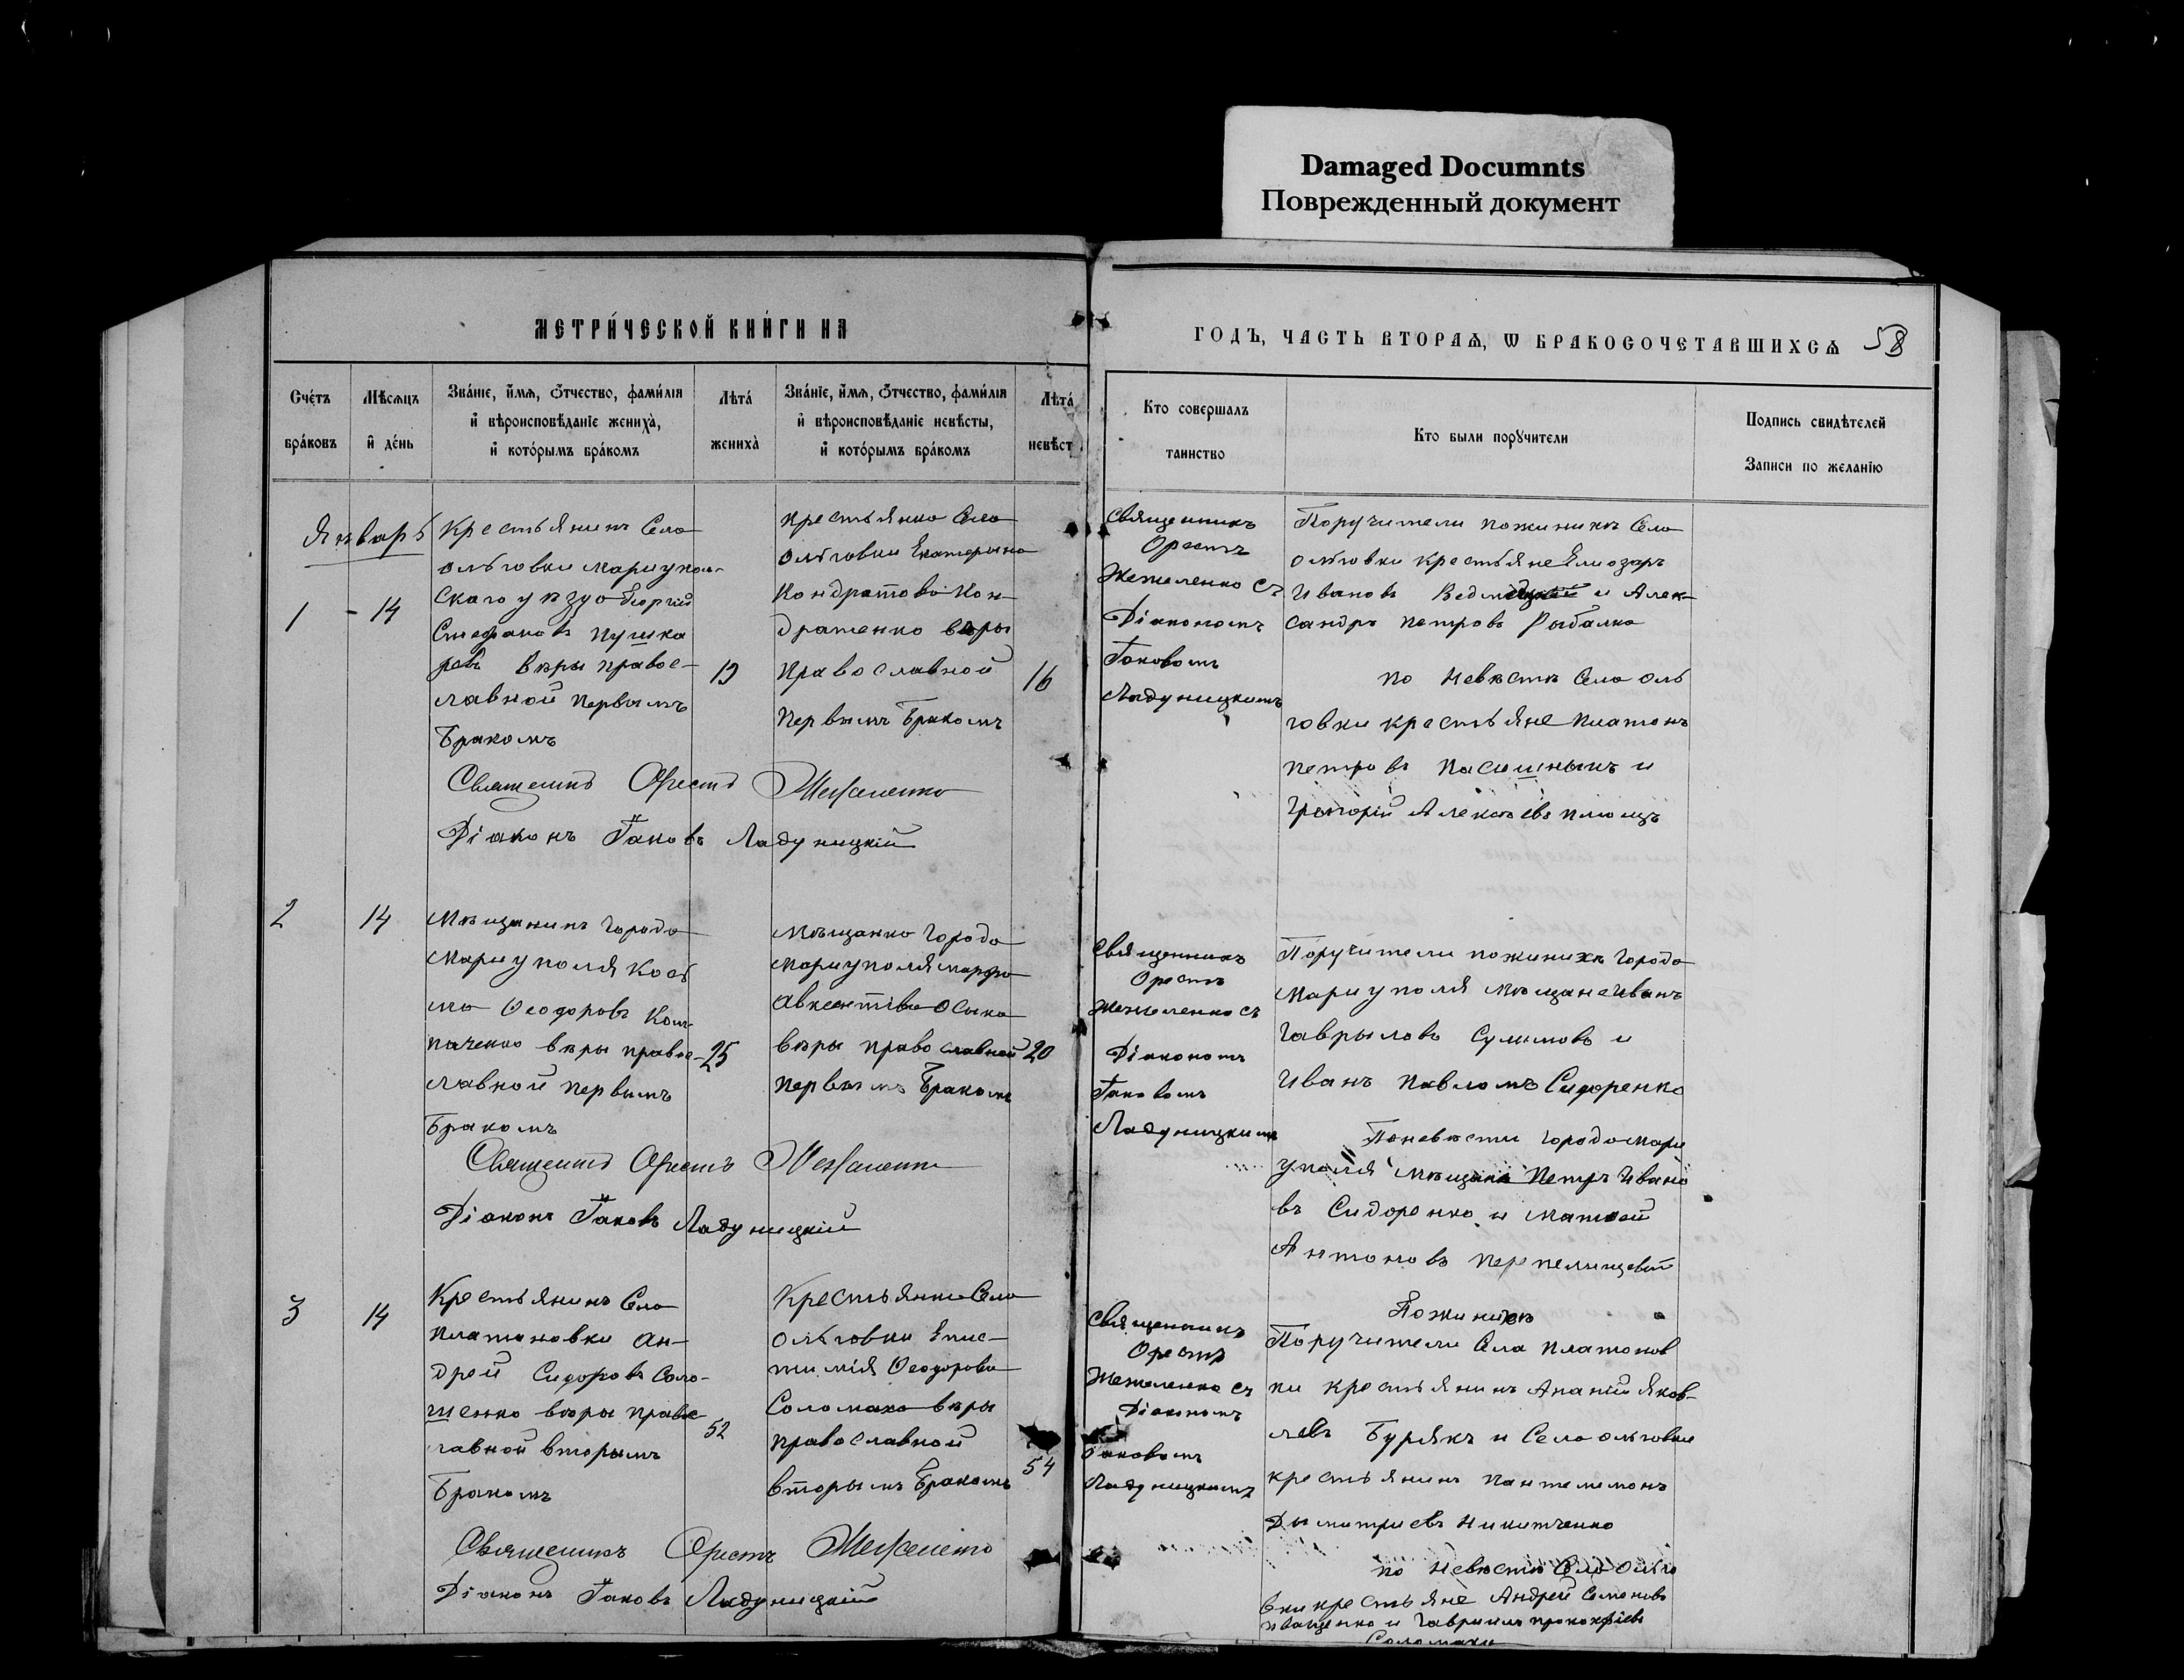 Damaged Documnts
Поврежденный документ
МЕТРИ́ЧЕСКОЙ КНИ́ГИ НА
ГОДЪ, ЧАСТЬ ВТОРАѦ, Ѡ БРАКОСОЧЕТАВШИХСѦ 58
Сче́тъ
бра́ковъ
Мѣсѧцъ
и де́нь
Зва́нїе, и́мѧ, ѻ́тчество, фами́лїя
и вѣроисповѣданїе жениха̀,
и кото́рымъ бра́комъ
Лѣта́
жениха̀
Зва́нїе, и́мѧ, ѻ́тчество, фами́лїя
и вѣроисповѣданїе невѣсты,
и кото́рымъ бра́комъ
Лѣта́
невѣст
Кто совершалъ
таинство
Кто были порꙋчители
Подпись свидѣтелей
Записи по желанїю
Январь
1 - 14
Крестьянинъ Села
Ольговки Мариуполь-
скаго уѣзда Георгій
Стефановъ Пушка
ревъ вѣры правос-
лавной первымъ
Бракомъ
19
Крестьянка Села
Ольговки Екатерина
Кондратова Кон-
дратенко вѣры
Православной
Первымъ Бракомъ
16
Священникъ
Орестъ
Жежеленко съ
Діакономъ
Іаковомъ
Ладуницкимъ
Поручители по жинихѣ Села
Ольговки крестьяне Елиозаръ
Ивановъ и Алек-
сандръ Петровъ Рыбалка
по невѣстѣ Села Оль
говки крестьяне Платонъ
Петровъ и
Григорій Алексѣевъ Плющъ
Священникъ Орестъ Жежеленко
Діаконъ Іаковъ Ладуницкій
2
14
Мѣщанинъ города
Мариуполя Козь
ма Ѳеодоровъ Кол-
паченко вѣры правос-
лавной первымъ
Бракомъ
25
Мѣщанка города
Мариуполя Марфа
Авксентіева Осыка
вѣры православной
первымъ Бракомъ
20
Священникъ
Орестъ
Жежеленко съ
Діакономъ
Іаковомъ
Ладуницкимъ
Поручители по жинихѣ города
Мариуполя мѣщане Иванъ
Гаврыловъ Сулимовъ и
Иванъ Павломъ Сидоренко
По невѣсти города Мари
уполя мѣщане Петръ Ивано
въ Сидоренко и Матвѣй
Антоновъ
Священникъ Орестъ Жежеленко
Діаконъ Іаковъ Ладуницкій
3
14
Крестьянинъ Села
Платоновки Ан-
дрей Сидоровъ Соло-
шенко вѣры правос-
лавной вторымъ
Бракомъ
52
Крестьянка Села
Ольговки Епис-
тимія Ѳеодорова
Соломаха вѣры
православной
вторымъ Бракомъ
54
Священникъ
Орестъ
Жежеленко съ
Діакономъ
Іаковомъ
Ладуницкимъ
По жинихѣ
Поручители Села Платонов
ки крестьянинъ Ананій Яков-
левъ Бурякъ и Села Ольговки
крестьянинъ Пантелимонъ
Дымитриевъ Никитченко
по невѣстѣ Села Ольго
вки крестьяне Андрей Семеновъ
Иващенко и Гавриилъ Прокофіевъ
Соломаха
Священникъ Орестъ Жежеленко
Діаконъ Іаковъ Ладуницкій